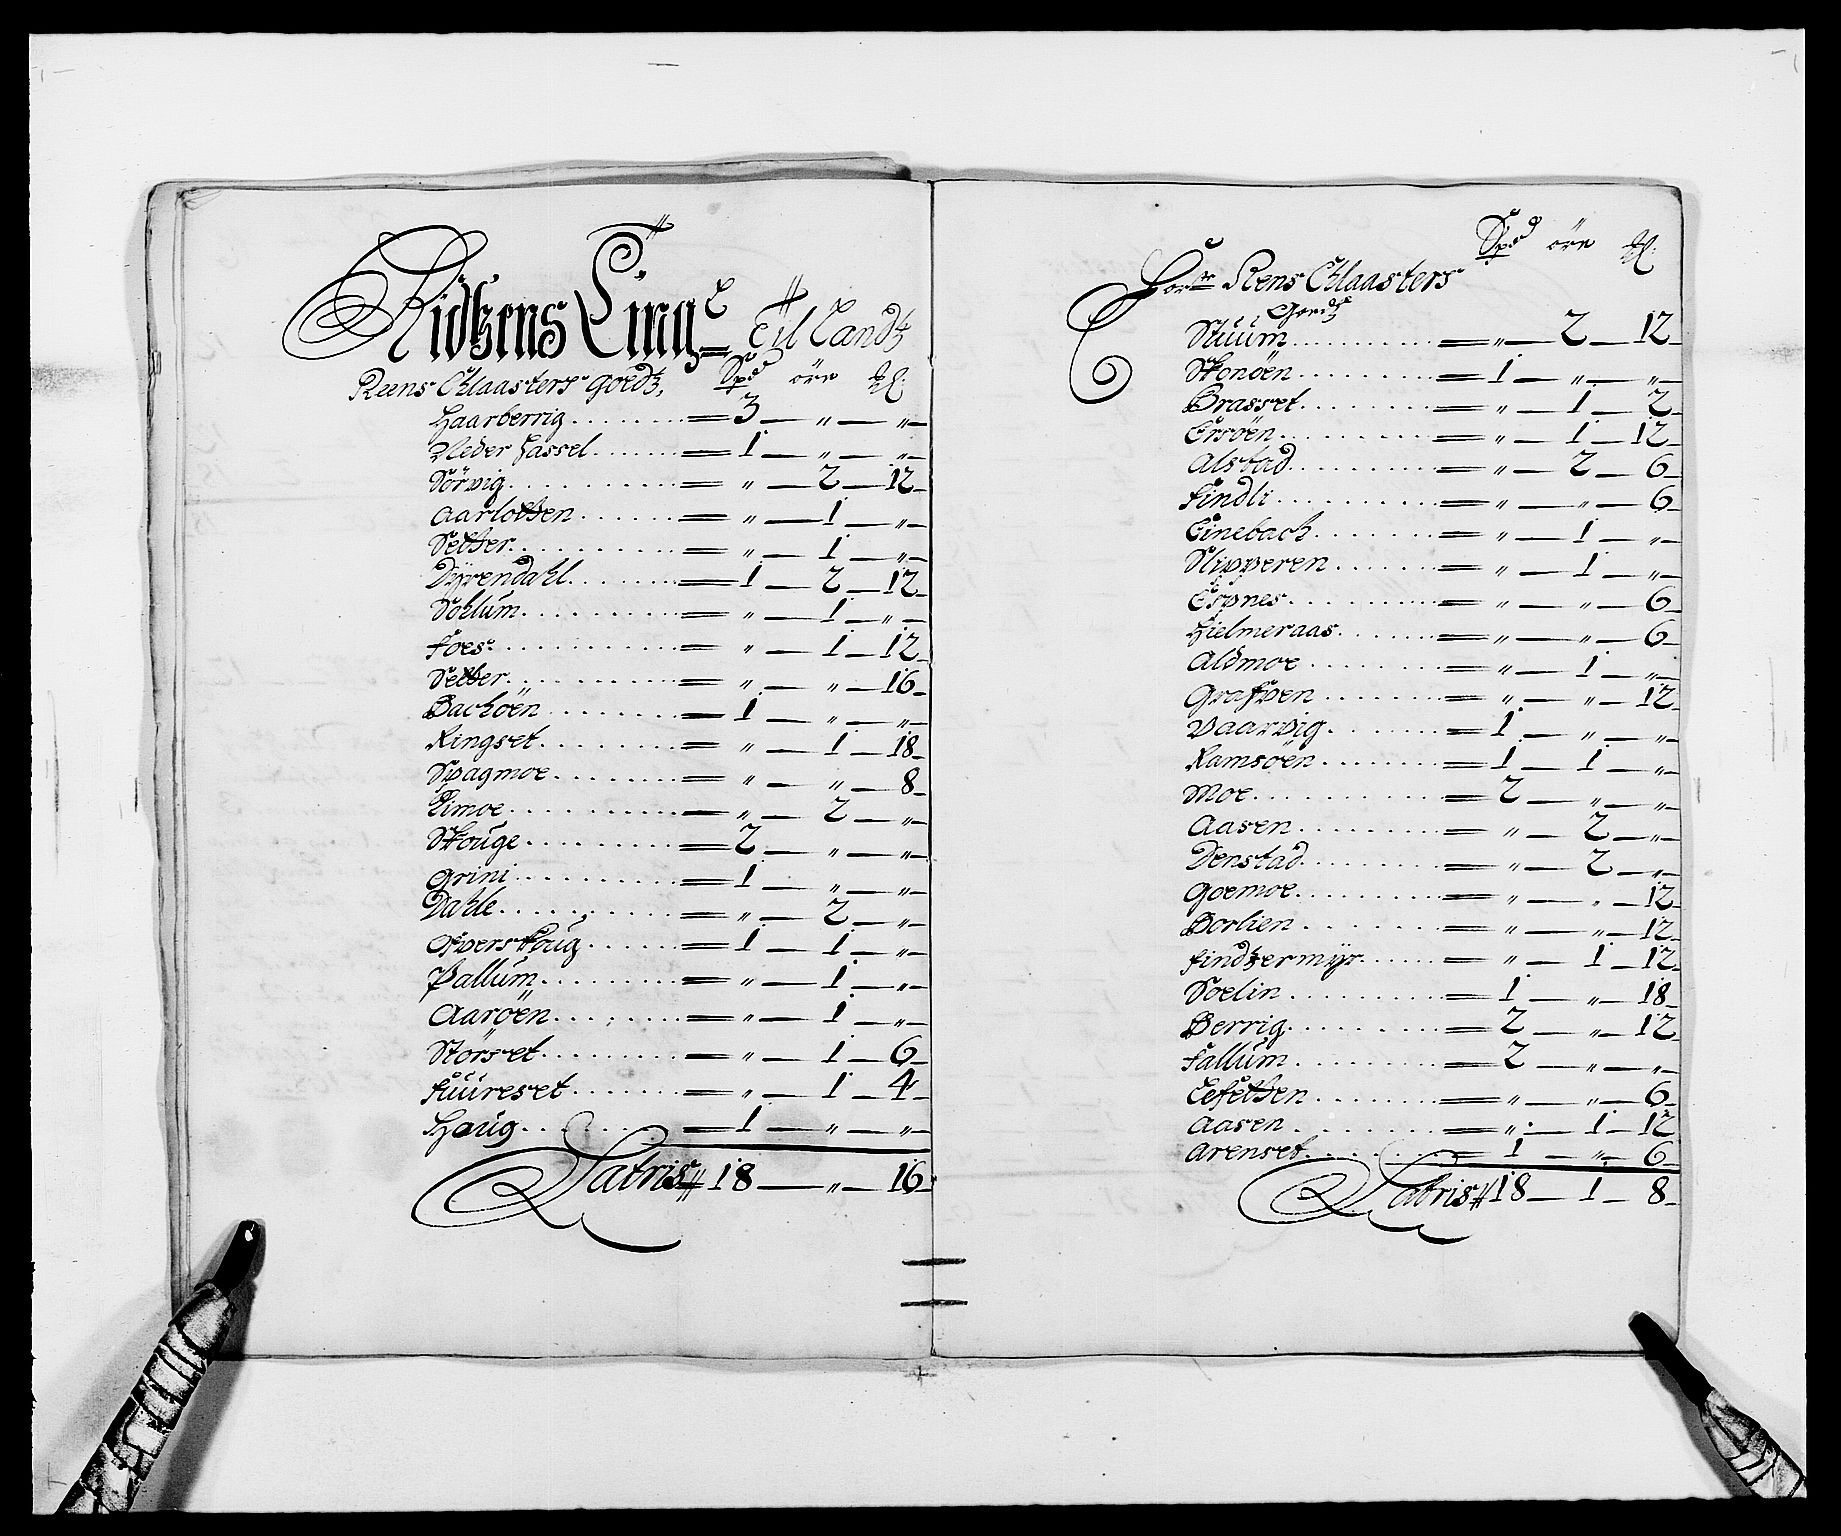 Ridtzens Ting: Til Landz
Reens Claasters goedtz, Spd öre Ml.
Haarberrig = 3 — " — "
Neder Hassel = 1 — " — "
Sörvig = " — 2 — 12
Aarlotten = " — 1 — "
Setter = " — 1 — "
Dÿrendahl = 1 — 2 — 12
Sohlum = " — 1 — "
Foes = " — 1 — 12
Setter = " — " — 16
Bachöen = 1 — " — "
Ringset = " — 1 — 18
Spagmoe = " — " — 8
Limoe = " — 2 — "
Skouge = 2 — " — "
Grini = 1 — " — "
Dahle = " — 2 — "
Ofverskoug = 1 — 1 — "
Pallum = " — 1 — "
Aaröen = " — 1 — "
Störset = " — 1 — 6
Fuureset = " — 1 — 4
Haug = 1 — " — "
Latris 18 — " — 16
Spd öre Ml.
For: Rens Claasters
Goedtz
Stuum = " — 2 — 12
Skonöen = 1 — " — "
Brasset = " — 1 — 2
Ersöen = " — 1 — 12
Alstad = " — 2 — 6
Findli = " — " — 6
Einebach = " — 1 — "
Slipperen = " — 1 — "
Espnes = " — " — 6
Hielmeraas = " — " — 6
Aldmoe = " — 1 — "
Grafven = " — " — 12
Vaarvig = 1 — " — "
Ramsöen = 1 — 1 — "
Moe = 2 — " — "
Aasen = " — 2 — "
Denstad = " — 2 — "
Goemoe = " — " — 12
Borlien = " — " — 12
Findzermyr = " — 1 — 12
Soelin = 1 — " — 18
Berrig = 2 — " — 12
Fallum = 2 — " — "
Lefetten = " — " — 6
Aasen = " — 1 — 12
Arenset = 1 — " — 6
Latris 18 — 1 — 8